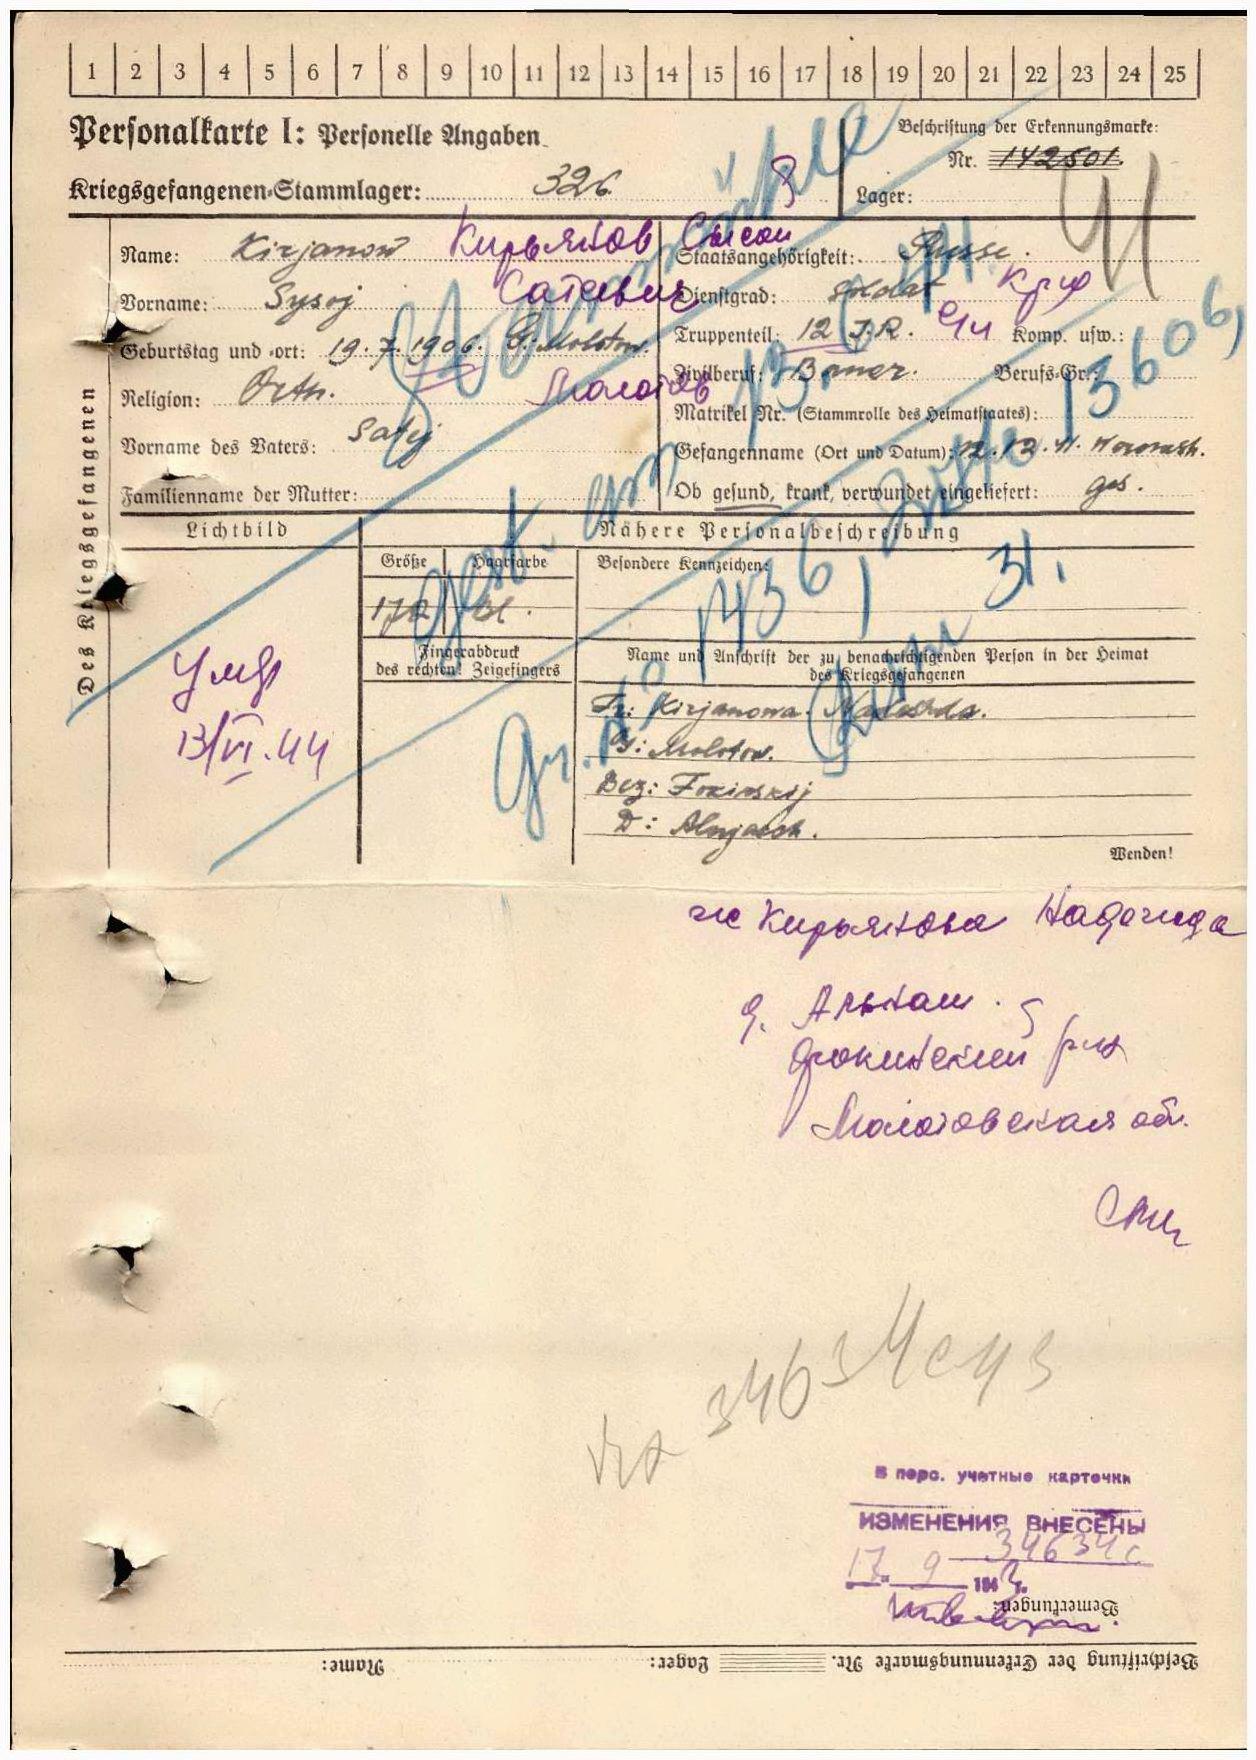 1 2 3 4 5 6 7 8 9 10 11 12 13 14 15 16 17 18 19 20 21 22 23 24 25
Personalkarte I: Personelle Angaben
Beschriftung der Erkennungsmarke:
Nr. 142501.
Kriegsgefangenen-Stammlager: 326.
Lager:
Des Kriegsgefangenen
Name: Kirjanow Кирьянов Сысой
Staatsangehörigkeit: Russe.
Vorname: Sysoj
Dienstgrad: Soldat
Geburtstag und -ort: 19.7.1906. G. Molotow.
Truppenteil: 12 I.R. Komp. usw.:
Молотов
Religion: Orth.
Zivilberuf: Bauer. Berufs-Gr.:
Matrikel Nr. (Stammrolle des Heimatstaates):
Vorname des Vaters:
Gefangenname (Ort und Datum): 12.12.41.
Familienname der Mutter:
Ob gesund, krank, verwundet eingeliefert: ges.
Lichtbild
Nähere Personalbeschreibung
Größe Haarfarbe
Besondere Kennzeichen:
172 bl.
gest. am 13.
Gr. No 1436, 31.
Fingerabdruck
des rechten! Zeigefingers
Name und Anschrift der zu benachrichtigenden Person in der Heimat
des Kriegsgefangenen
Умер
13/VI.44
Fr: Kirjanowa. Nadeshda.
G: Molotow.
Bez: Fokinskij
D: Alnjasch.
Wenden!
ж Кирьянова Надежда
д. Альняш.
Фокинский р-н
Молотовская обл.
34634с
В перс. учетные карточки
ИЗМЕНЕНИЯ ВНЕСЕНЫ
34634с
17. 9 194
Bemerkungen:
Beschriftung der Erkennungsmarke Nr. Lager: Name: